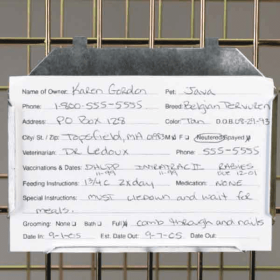 Name of Owner: Karen Gordon Pet: Java
Phone: 1-800-555-5555 Breed: Belgian Tervuren
Address: PO Box 128 Color: Tan D.O.B. 09-29-93
City/ St. / Zip: Topsfield, MA M F Neutered Spayed
Veterinarian: Dr Ledoux Phone: 555-5555
Vaccinations & Dates: DHLPP INNATRAC II RABIES
11-99 11-99 12-01
Feeding Instructions: 1 3/4 C 2x day Medication: NONE
Special Instructions: must liedown and wait for
meals.
Grooming: None Bath Full comb through and nails
Date In: 9-1-05 Est. Date Out: 9-7-05 Date Out: